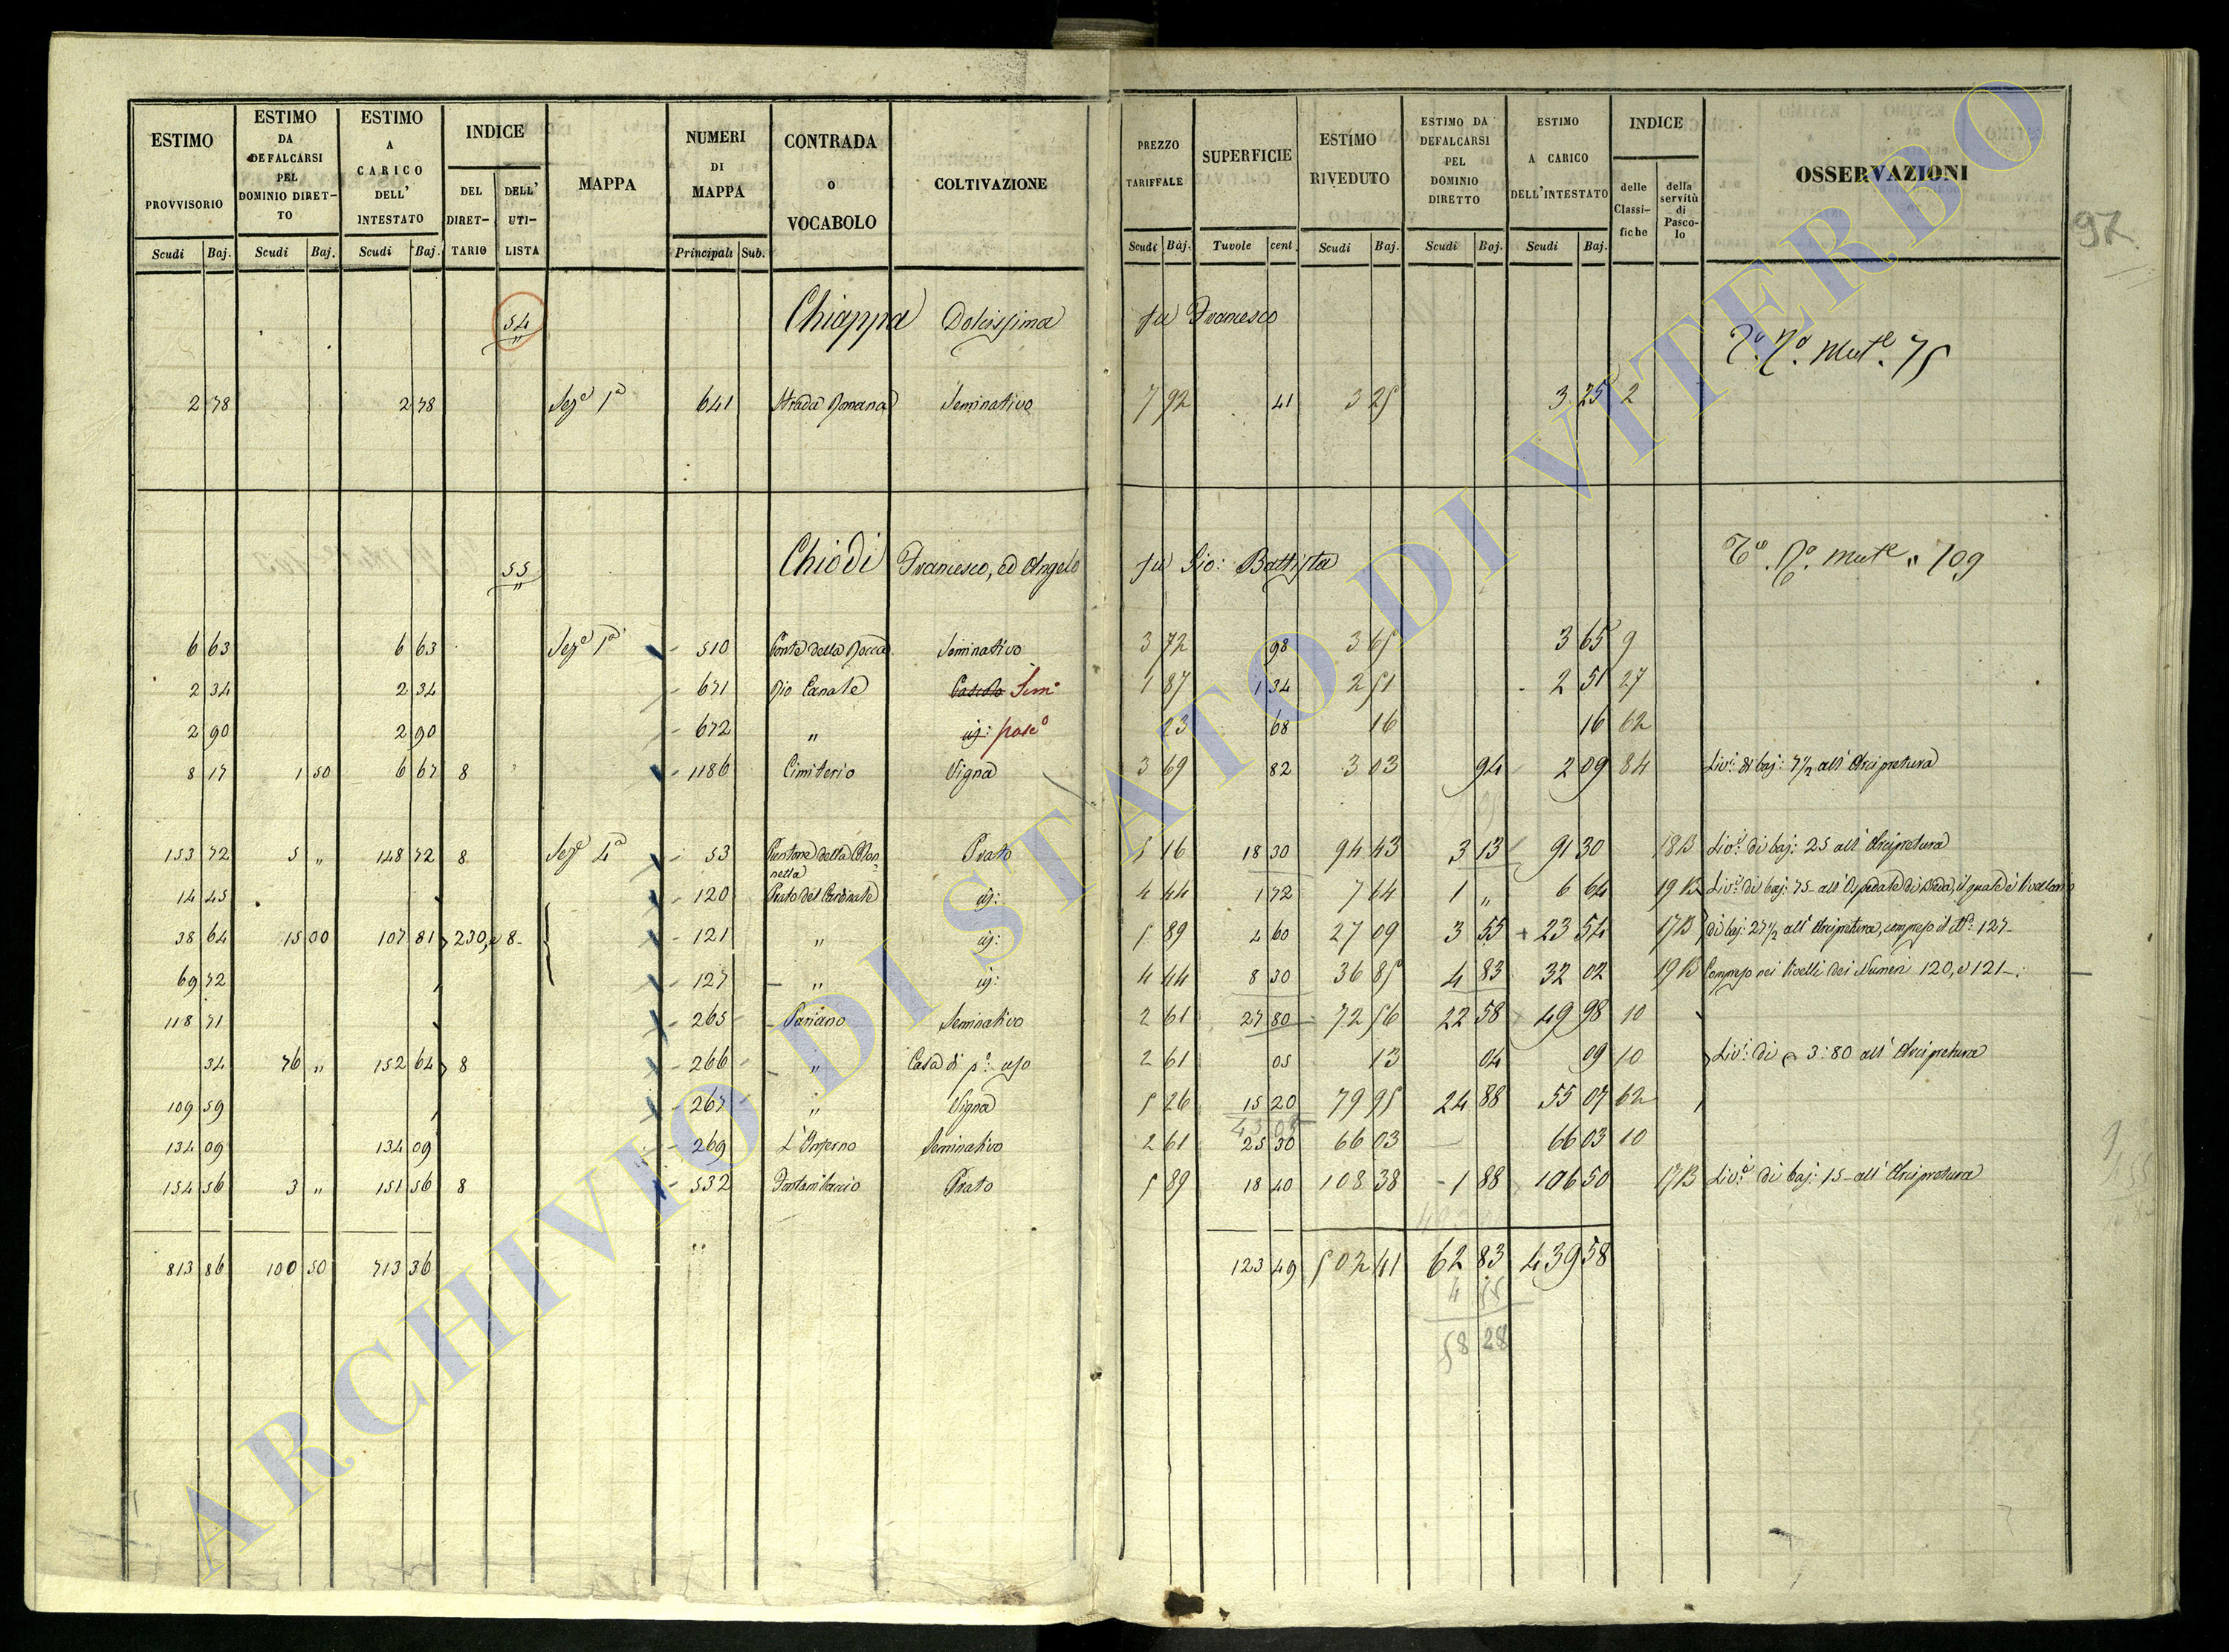 ESTIMO PROVVISORIO Scudi Baj.
ESTIMO DA DEFALCARSI PEL DOMINIO DIRETTO Scudi Baj.
ESTIMO A CARICO DELL' INTESTATO Scudi Baj.
INDICE DEL DIRETTARIO DELL' UTILISTA
MAPPA
NUMERI DI MAPPA Principali Sub.
CONTRADA O VOCABOLO
COLTIVAZIONE
PREZZO TARIFFALE Scudi Baj.
SUPERFICIE Tavole cent.
ESTIMO RIVEDUTO Scudi Baj.
ESTIMO DA DEFALCARSI PEL DOMINIO DIRETTO Scudi Baj.
ESTIMO A CARICO DELL'INTESTATO Scudi Baj.
INDICE delle Classifiche della servitù di Pascolo
OSSERVAZIONI
97
54 Chiappa Dolcissima fu Francesco
Mut.e 75
2 78 2 78 Sez.e 1a 641 Strada Romana Seminativo 7 92 41 3 25 3 25 2
55 Chiodi Francesco, ed Angelo fu Gio: Battista Mut.e 109
6 63 6 63 Sez.e 1a 510 Ponte della Rocca Seminativo 3 72 98 3 65 3 65 9
2 34 2 34 671 Rio Canale Pascolo Sem.o 1 87 1 34 2 51 2 51 27
2 90 2 90 672 " id: pasc.o 23 68 16 16 62
8 17 1 50 6 67 8 1186 Cimiterio Vigna 3 69 82 3 03 94 2 09 84 Liv.o di baj: 7½ all' Arcipretura
153 72 5 " 148 72 8 Sez.e 4a 53 Prato 5 16 18 30 94 43 3 13 91 30 18 B Liv.o di baj: 25 all' Arcipretura
14 45 120 Prato del Cardinale id: 4 44 1 72 7 64 1 " 6 64 19 B Liv.o di baj: 75 all' Ospedale di Breda, il quale è livellario
38 64 15 00 107 81 230, e 8 121 " id: 5 89 4 60 27 09 3 55 23 54 17 B di baj: 27½ all' Arcipretura, compreso il N.o 127
69 72 127 " id: 4 44 8 30 36 85 4 83 32 02 19 B Compreso nei livelli dei Numeri 120, e 121
118 71 265 Pariano Seminativo 2 61 27 80 72 56 22 58 49 98 10
34 76 " 152 64 8 266 " Casa di p.o uso 2 61 05 13 04 09 10 Liv.o di 3:80 all' Arcipretura
109 59 267 " Vigna 5 26 15 20 79 95 24 88 55 07 62
134 09 134 09 269 L'Inferno Seminativo 2 61 25 30 66 03 66 03 10
154 56 3 " 151 56 8 532 Prato 5 89 18 40 108 38 1 88 106 50 17 B Liv.o di baj: 15 all' Arcipretura
813 86 100 50 713 36 123 49 502 41 62 83 439 58
4 55
58 28
ARCHIVIO DI STATO DI VITERBO